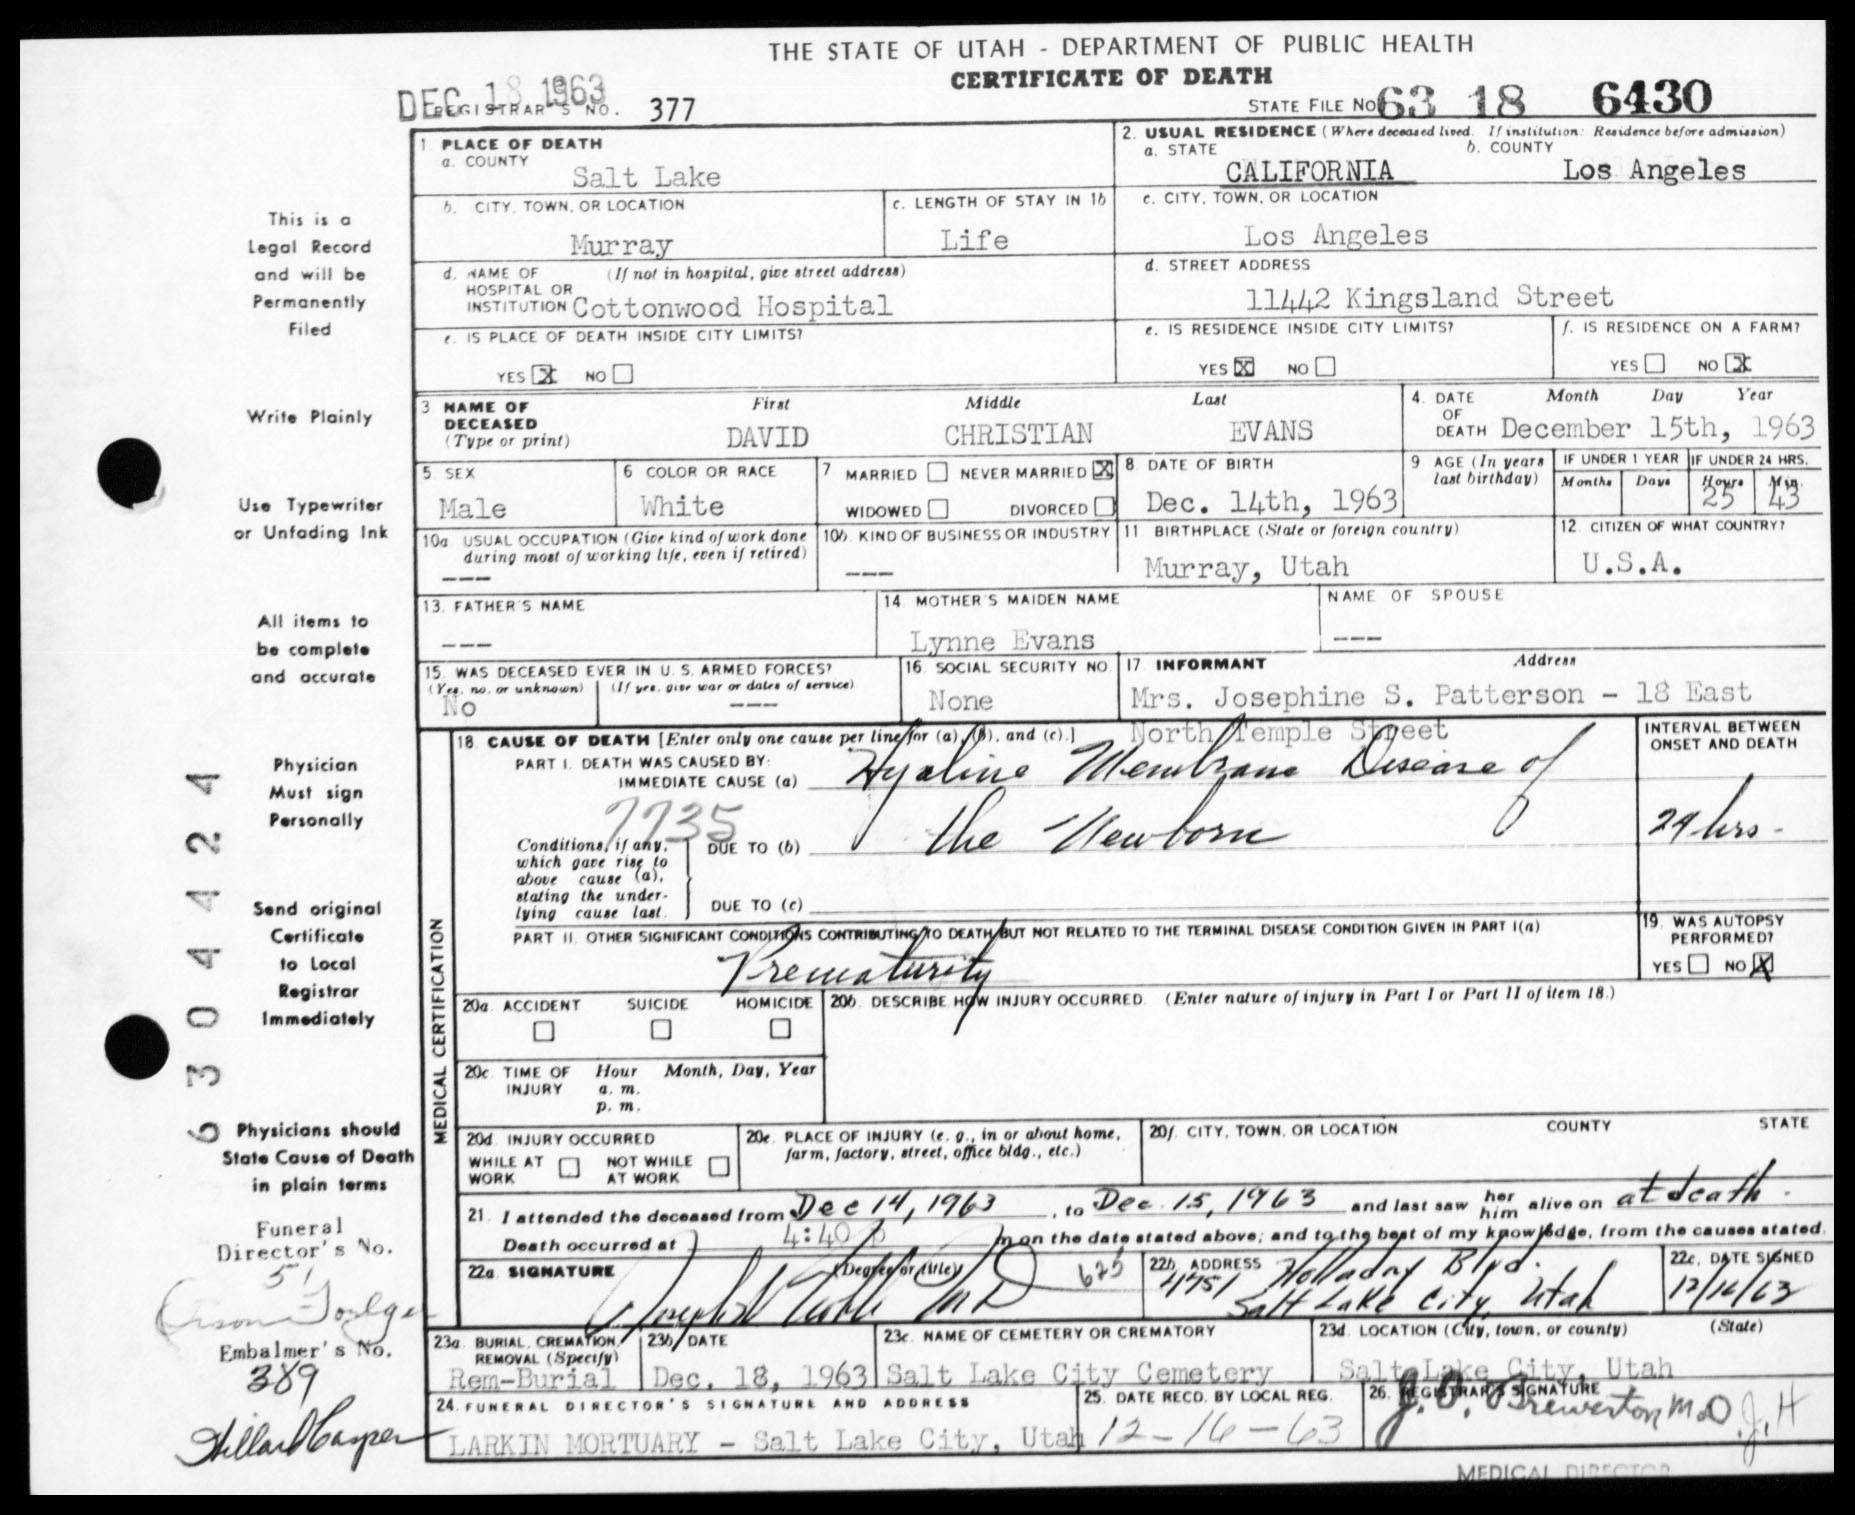 THE STATE OF UTAH - DEPARTMENT OF PUBLIC HEALTH
CERTIFICATE OF DEATH
DEC 18 1963
REGISTRAR'S NO. 377
STATE FILE NO. 63 18 6430
1. PLACE OF DEATH
a. COUNTY
Salt Lake
2. USUAL RESIDENCE (Where deceased lived. If institution: Residence before admission)
a. STATE b. COUNTY
CALIFORNIA Los Angeles
b. CITY, TOWN, OR LOCATION
Murray
c. LENGTH OF STAY IN 1b
Life
c. CITY, TOWN, OR LOCATION
Los Angeles
d. NAME OF (If not in hospital, give street address)
HOSPITAL OR
INSTITUTION Cottonwood Hospital
d. STREET ADDRESS
11442 Kingsland Street
e. IS PLACE OF DEATH INSIDE CITY LIMITS?
YES X NO
e. IS RESIDENCE INSIDE CITY LIMITS?
YES X NO
f. IS RESIDENCE ON A FARM?
YES NO X
3 NAME OF DECEASED
(Type or print)
First Middle Last
DAVID CHRISTIAN EVANS
4. DATE OF DEATH
Month Day Year
December 15th, 1963
5 SEX
Male
6 COLOR OR RACE
White
7 MARRIED NEVER MARRIED X
WIDOWED DIVORCED
8 DATE OF BIRTH
Dec. 14th, 1963
9 AGE (In years last birthday)
IF UNDER 1 YEAR
Months Days
IF UNDER 24 HRS.
Hours Min.
25 43
10a USUAL OCCUPATION (Give kind of work done
during most of working life, even if retired)
---
10b. KIND OF BUSINESS OR INDUSTRY
---
11 BIRTHPLACE (State or foreign country)
Murray, Utah
12. CITIZEN OF WHAT COUNTRY?
U.S.A.
13. FATHER'S NAME
---
14 MOTHER'S MAIDEN NAME
Lynne Evans
NAME OF SPOUSE
---
15. WAS DECEASED EVER IN U. S. ARMED FORCES?
(Yes, no, or unknown) (If yes, give war or dates of service)
No ---
16. SOCIAL SECURITY NO.
None
17. INFORMANT Address
Mrs. Josephine S. Patterson - 18 East
North Temple Street
18. CAUSE OF DEATH [Enter only one cause per line for (a), (b), and (c).]
PART I. DEATH WAS CAUSED BY:
IMMEDIATE CAUSE (a) Hyaline Membrane Disease of
7735
Conditions, if any,
which gave rise to
above cause (a),
stating the under-
lying cause last.
DUE TO (b) the Newborn
DUE TO (c)
INTERVAL BETWEEN
ONSET AND DEATH
24 hrs.
PART II. OTHER SIGNIFICANT CONDITIONS CONTRIBUTING TO DEATH BUT NOT RELATED TO THE TERMINAL DISEASE CONDITION GIVEN IN PART I(a)
Prematurity
19. WAS AUTOPSY
PERFORMED?
YES NO X
MEDICAL CERTIFICATION
20a. ACCIDENT SUICIDE HOMICIDE
20b. DESCRIBE HOW INJURY OCCURRED. (Enter nature of injury in Part I or Part II of item 18.)
20c. TIME OF INJURY
Hour Month, Day, Year
a. m.
p. m.
20d. INJURY OCCURRED
WHILE AT WORK NOT WHILE AT WORK
20e. PLACE OF INJURY (e. g., in or about home,
farm, factory, street, office bldg., etc.)
20f. CITY, TOWN, OR LOCATION COUNTY STATE
21. I attended the deceased from Dec 14, 1963, to Dec. 15, 1963 and last saw her him alive on at death.
Death occurred at 4:40 p m on the date stated above; and to the best of my knowledge, from the causes stated.
22a. SIGNATURE (Degree or title)
M D 675
22b. ADDRESS
4751 Holladay Blvd.
Salt Lake City, Utah
22c. DATE SIGNED
12/16/63
23a. BURIAL, CREMATION,
REMOVAL (Specify)
Rem-Burial
23b. DATE
Dec. 18, 1963
23c. NAME OF CEMETERY OR CREMATORY
Salt Lake City Cemetery
23d. LOCATION (City, town, or county) (State)
Salt Lake City, Utah
24. FUNERAL DIRECTOR'S SIGNATURE AND ADDRESS
LARKIN MORTUARY - Salt Lake City, Utah
25. DATE RECD. BY LOCAL REG.
12-16-63
26. REGISTRAR'S SIGNATURE
M.D. J.H
MEDICAL DIRECTOR
This is a
Legal Record
and will be
Permanently
Filed
Write Plainly
Use Typewriter
or Unfading Ink
All items to
be complete
and accurate
Physician
Must sign
Personally
Send original
Certificate
to Local
Registrar
Immediately
Physicians should
State Cause of Death
in plain terms
Funeral
Director's No.
51
Embalmer's No.
389
63044244